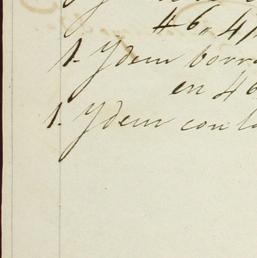 46,, 4
1. Ydem borra
en 46
1. Ydem con la